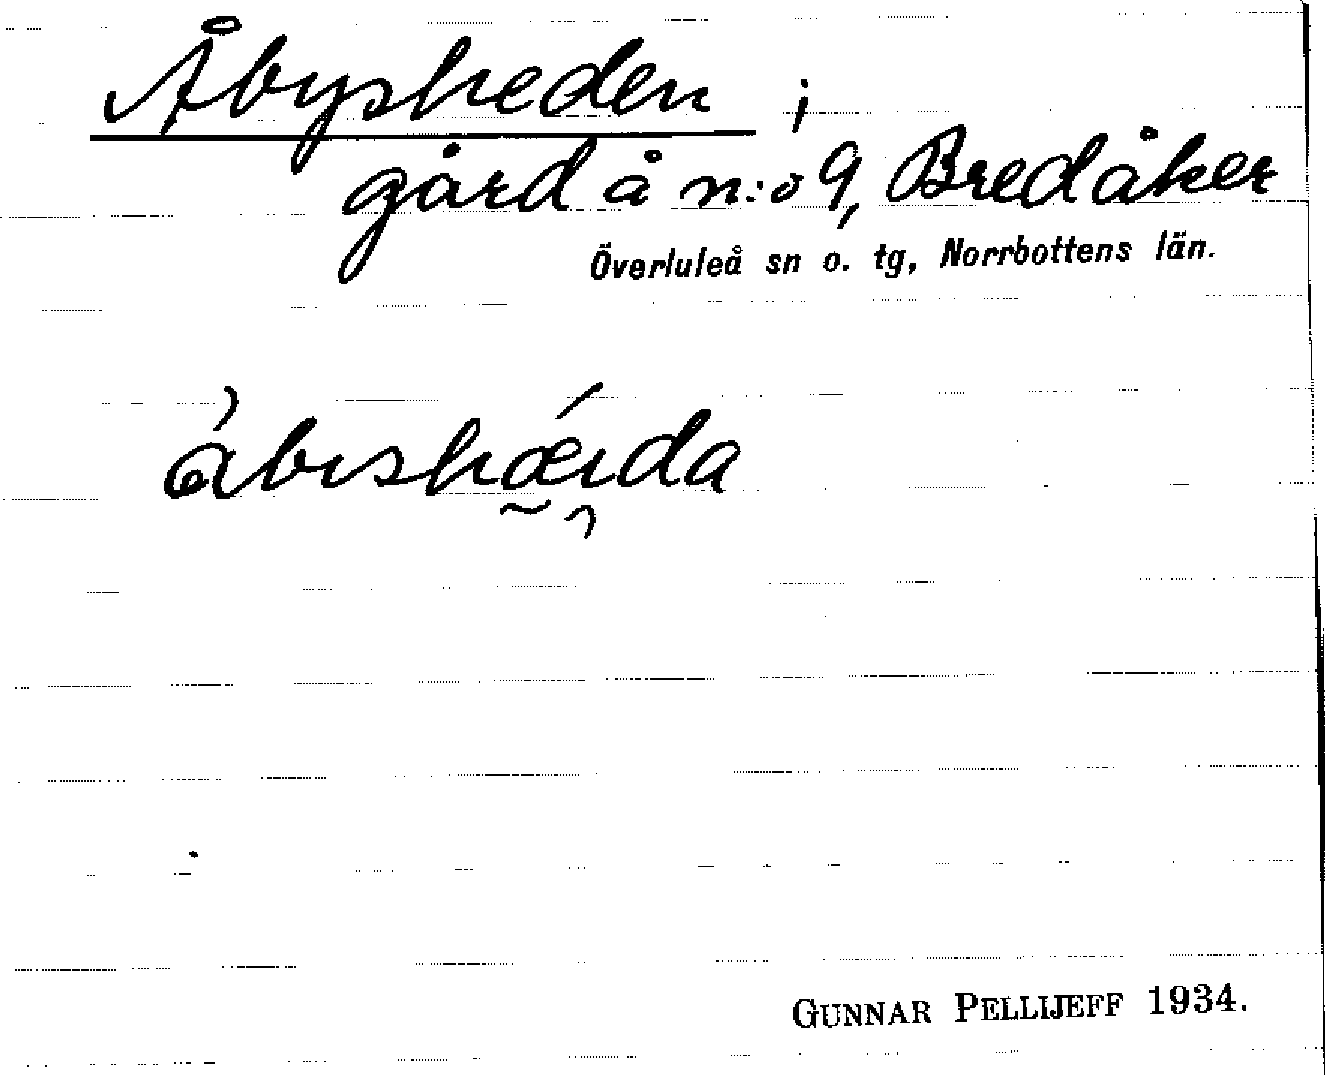 Åbysheden ;
gård å n:o 9, Bredåker
Överluleå sn o. tg, Norrbottens län.
åbıshǽıda
GUNNAR PELLIJEFF 1934.